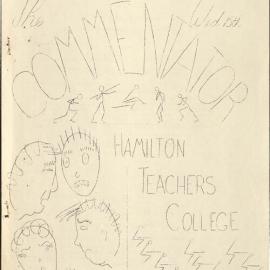 This Wed 15th.
COMMENTATOR
HAMILTON
TEACHERS
COLLEGE